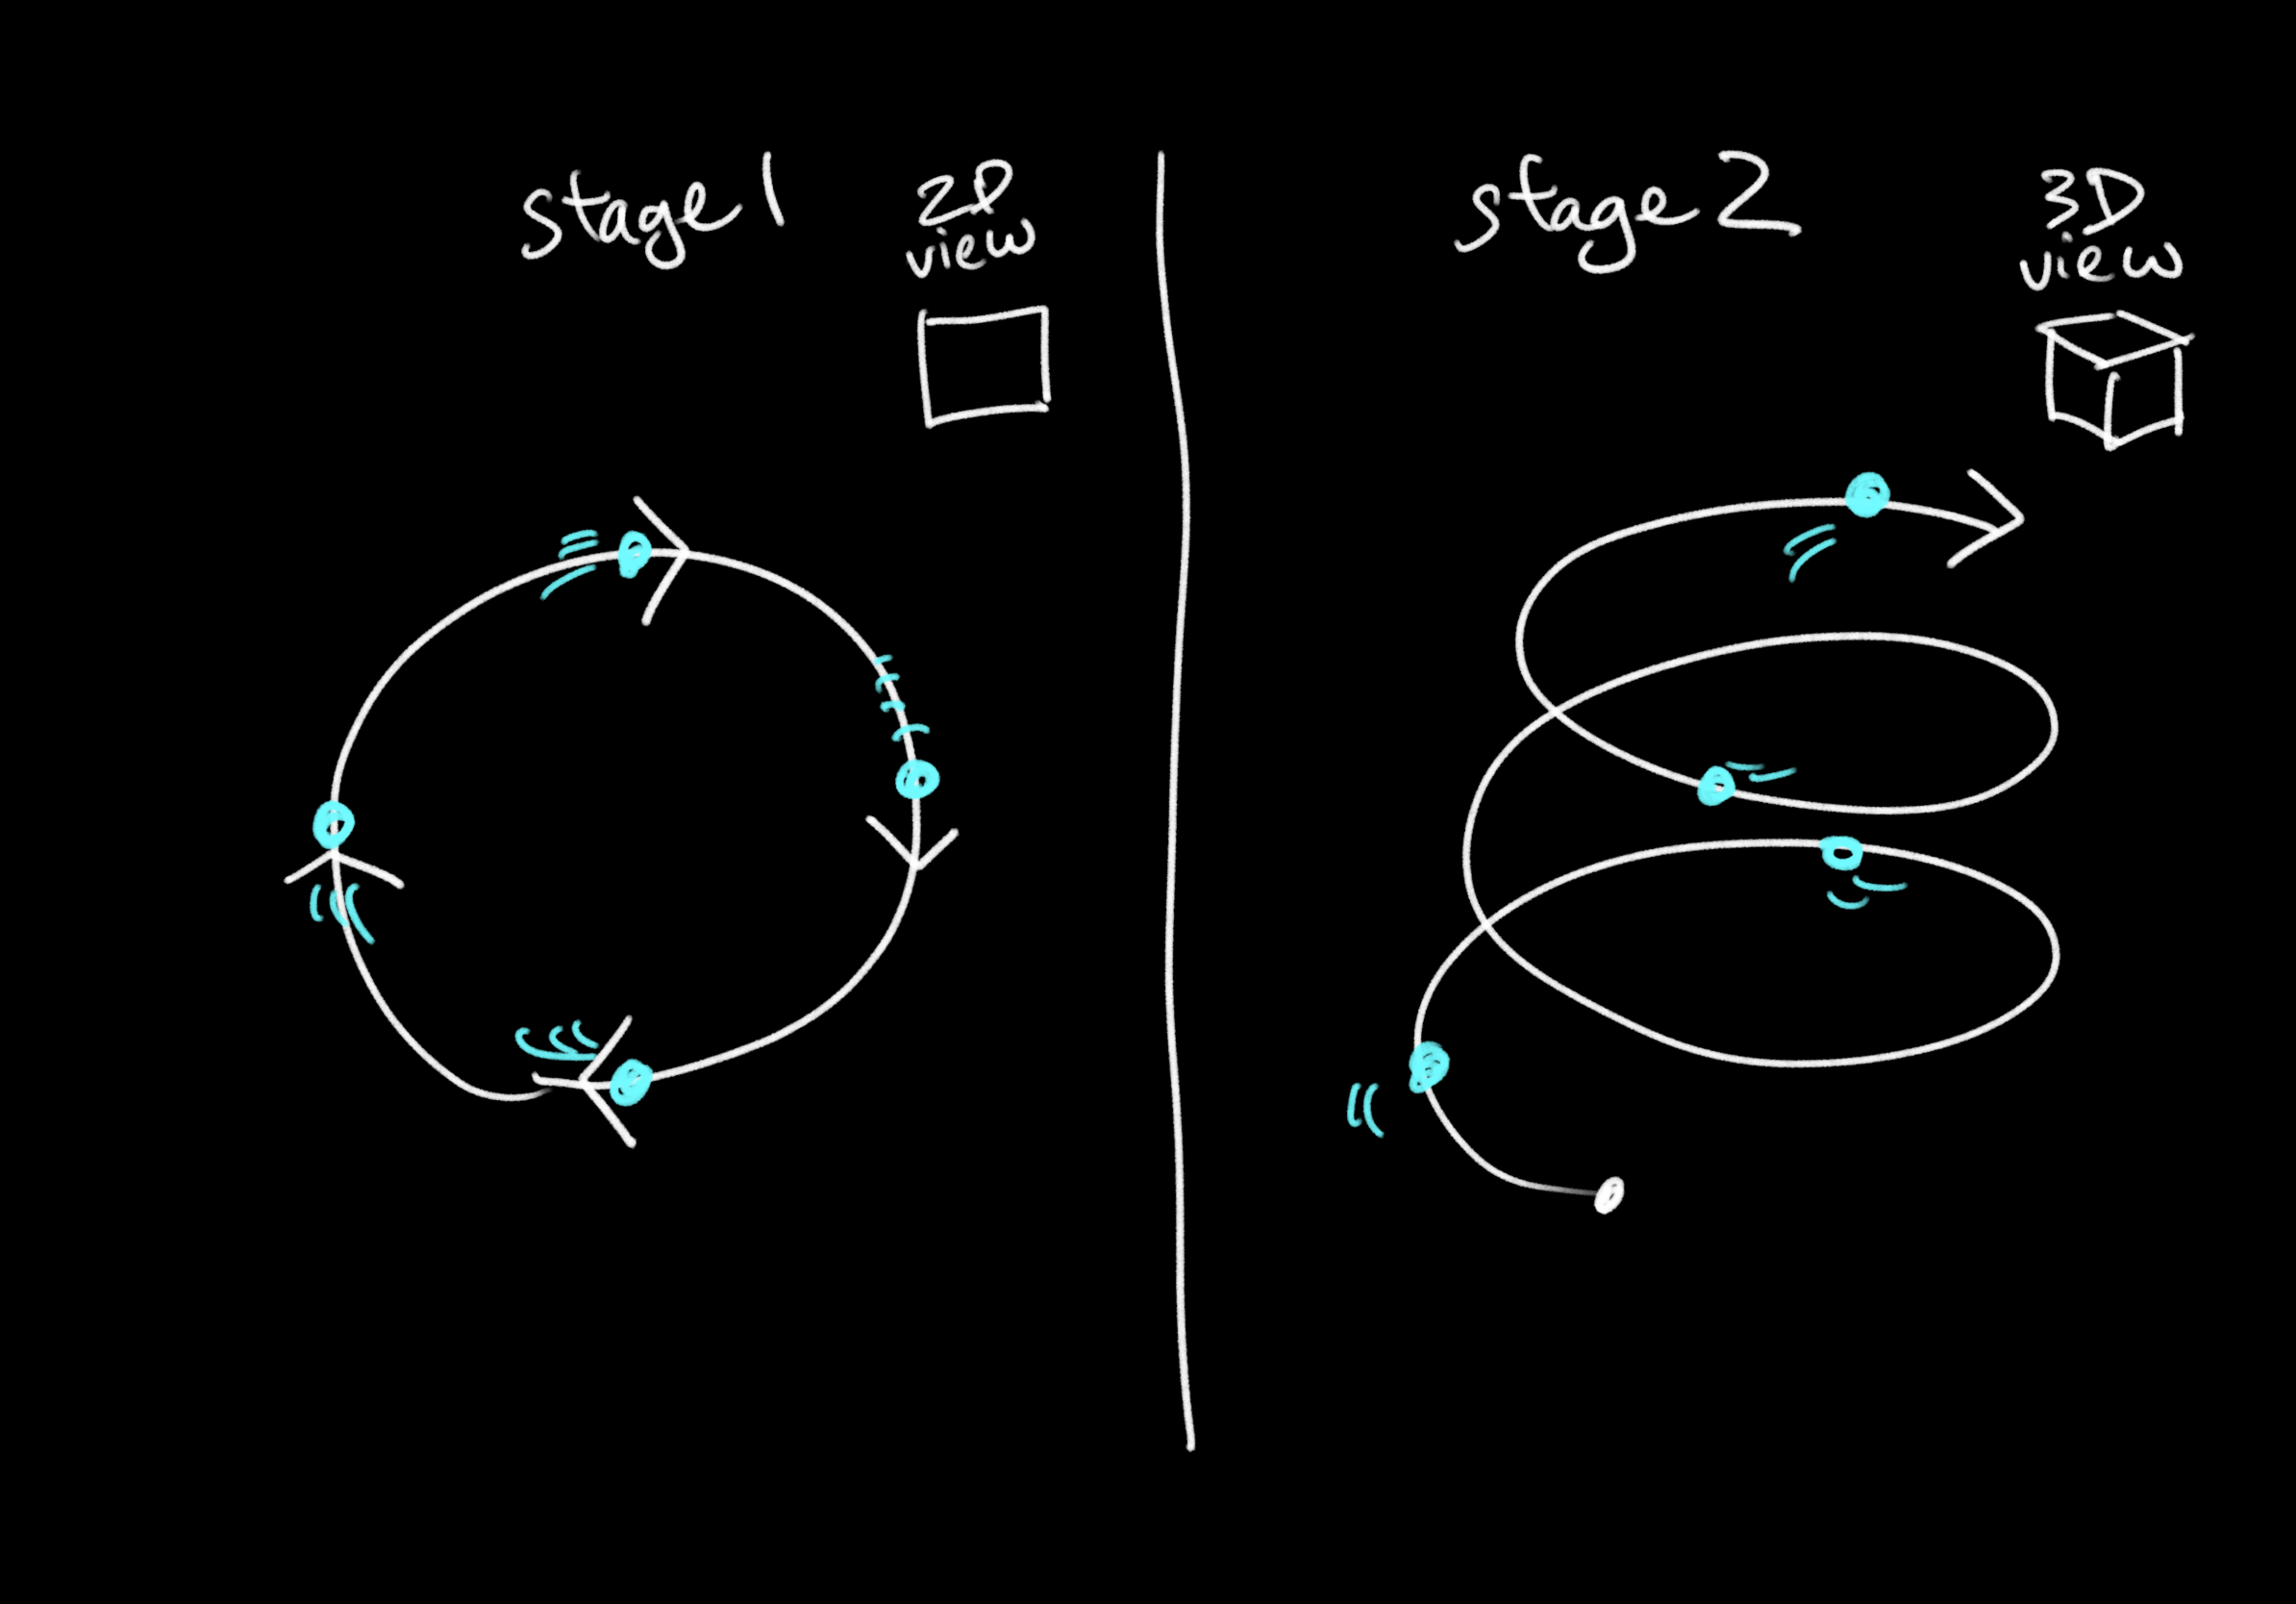 stage 1
2D
view
stage 2
3D
view